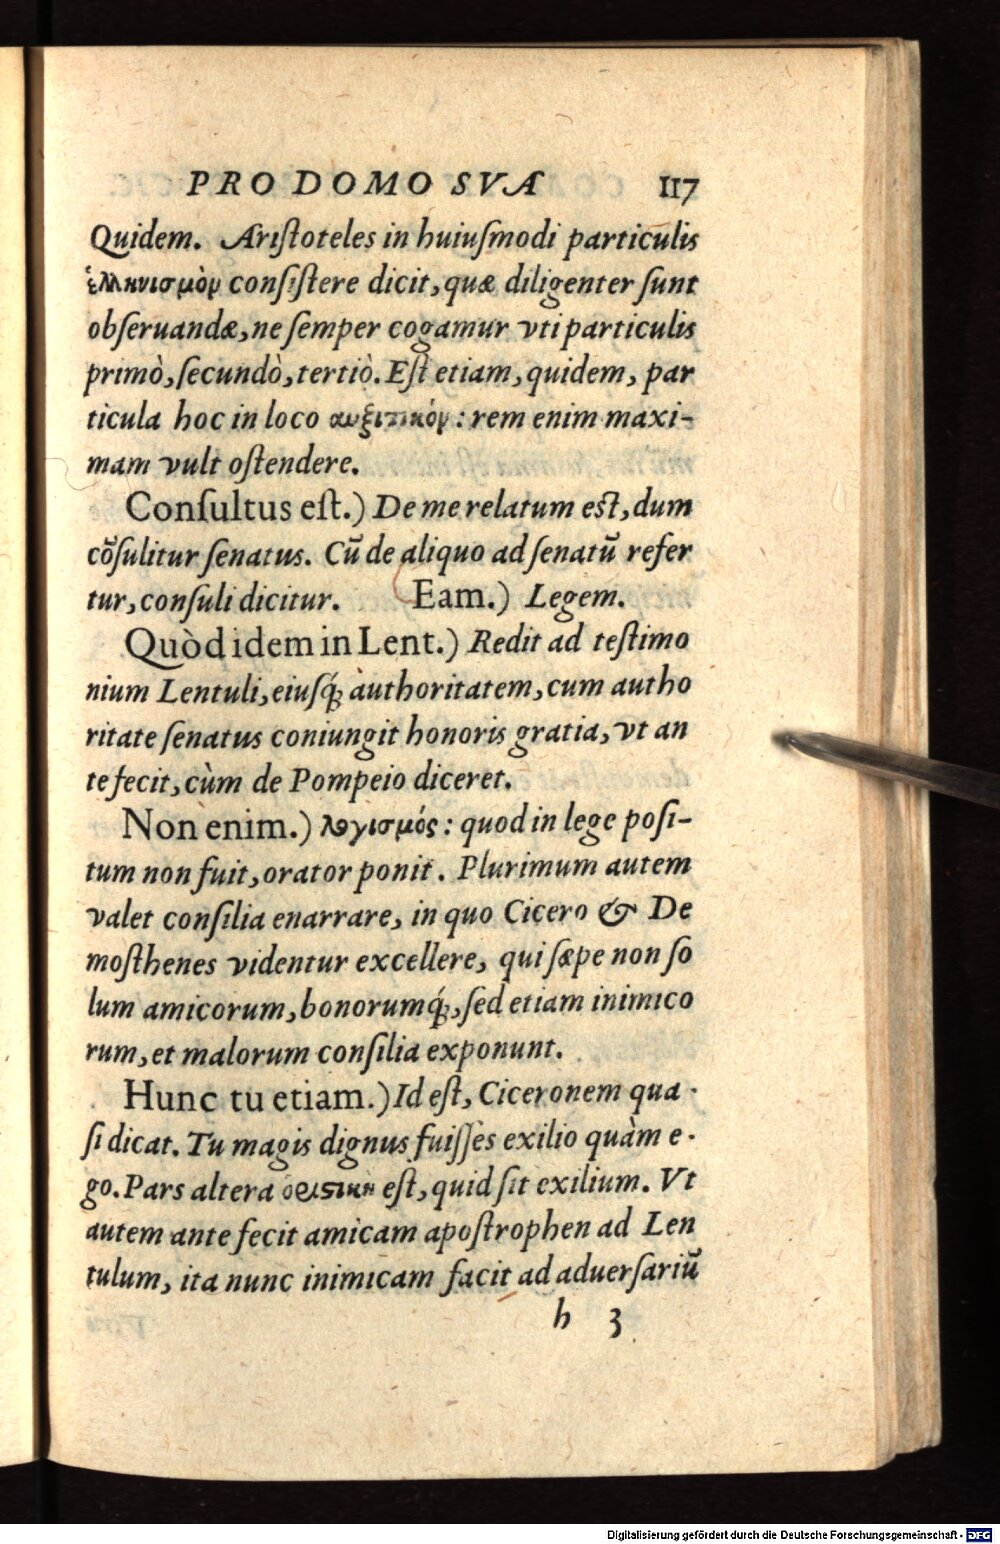 PRO DOMO SVA 117
Quidem. Aristoteles in huiusmodi particulis
ἑλληνισμὸν consistere dicit, quæ diligenter sunt
obseruandæ, ne semper cogamur vti particulis
primò, secundò, tertiò. Est etiam, quidem, par
ticula hoc in loco αυξιτικόν: rem enim maxi-
mam vult ostendere.
Consultus est.) De me relatum est, dum
cõsulitur senatus. Cũ de aliquo ad senatũ refer
tur, consuli dicitur. Eam.) Legem.
Quòd idem in Lent.) Redit ad testimo
nium Lentuli, eiusq́; authoritatem, cum autho
ritate senatus coniungit honoris gratia, vt an
te fecit, cùm de Pompeio diceret.
Non enim.) λογισμός: quod in lege posi-
tum non fuit, orator ponit. Plurimum autem
valet consilia enarrare, in quo Cicero & De
mosthenes videntur excellere, qui sæpe non so
lum amicorum, bonorumq́;, sed etiam inimico
rum, et malorum consilia exponunt.
Hunc tu etiam.) Id est, Ciceronem qua-
si dicat. Tu magis dignus fuisses exilio quàm e-
go. Pars altera οριστικη est, quid sit exilium. Vt
autem ante fecit amicam apostrophen ad Len
tulum, ita nunc inimicam facit ad aduersariũ
h 3
Digitalisierung gefördert durch die Deutsche Forschungsgemeinschaft - DFG